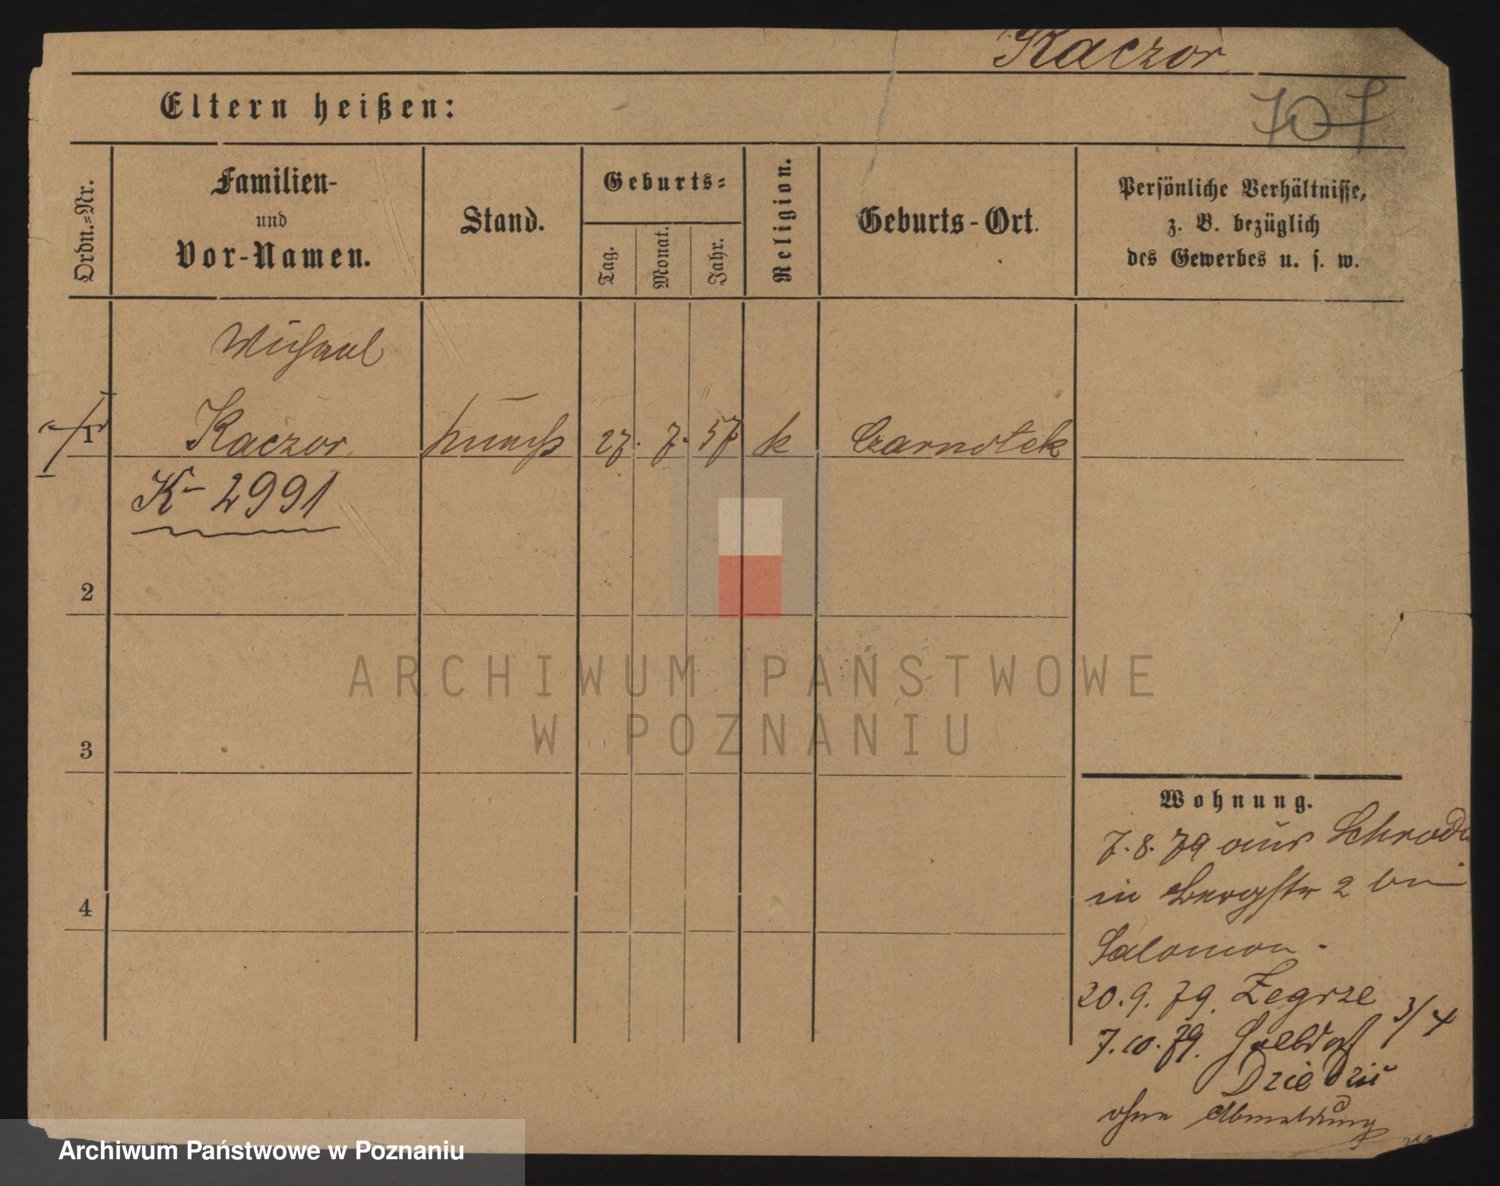 Kaczor
707
Eltern heißen:
Ordn.=Nr.
Familien-
und
Vor-Namen.
Stand.
Geburts=
Tag.
Monat.
Jahr.
Religion.
Geburts-Ort.
Persönliche Verhältnisse,
z. B. bezüglich
des Gewerbes u. s. w.
Michael
1 Kaczor 27. 7. 57 k Czarnotek
K- 2991
2
3
4
ARCHIWUM PAŃSTWOWE
W POZNANIU
Wohnung.
7.8.79 aus Schroda
in Bergstr 2 bei
Salomon.
20.9.79. Zegrze
7.10.79. 3/4
ohne Abmeldung
Archiwum Państwowe w Poznaniu